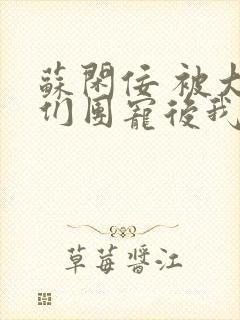 蘇閑佞 被大
们團寵後我
草莓醬江